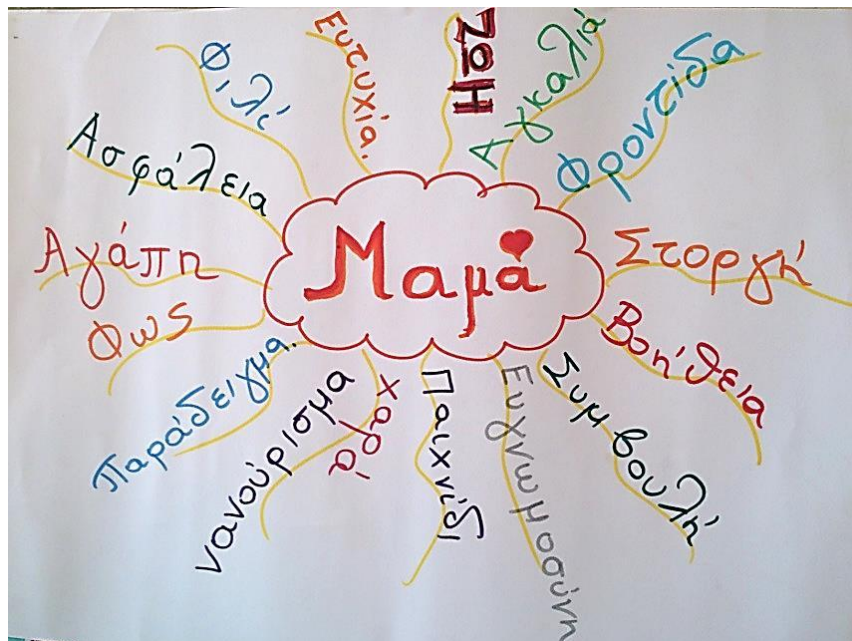 Μαμά
Ζωή
Αγκαλιά
Φροντίδα
Στοργή
Βοήθεια
Συμβουλή
Ευγνωμοσύνη
Παιχνίδι
χαρά
νανούρισμα
Παράδειγμα.
Φως
Αγάπη
Ασφάλεια
Φιλί
Ευτυχία.